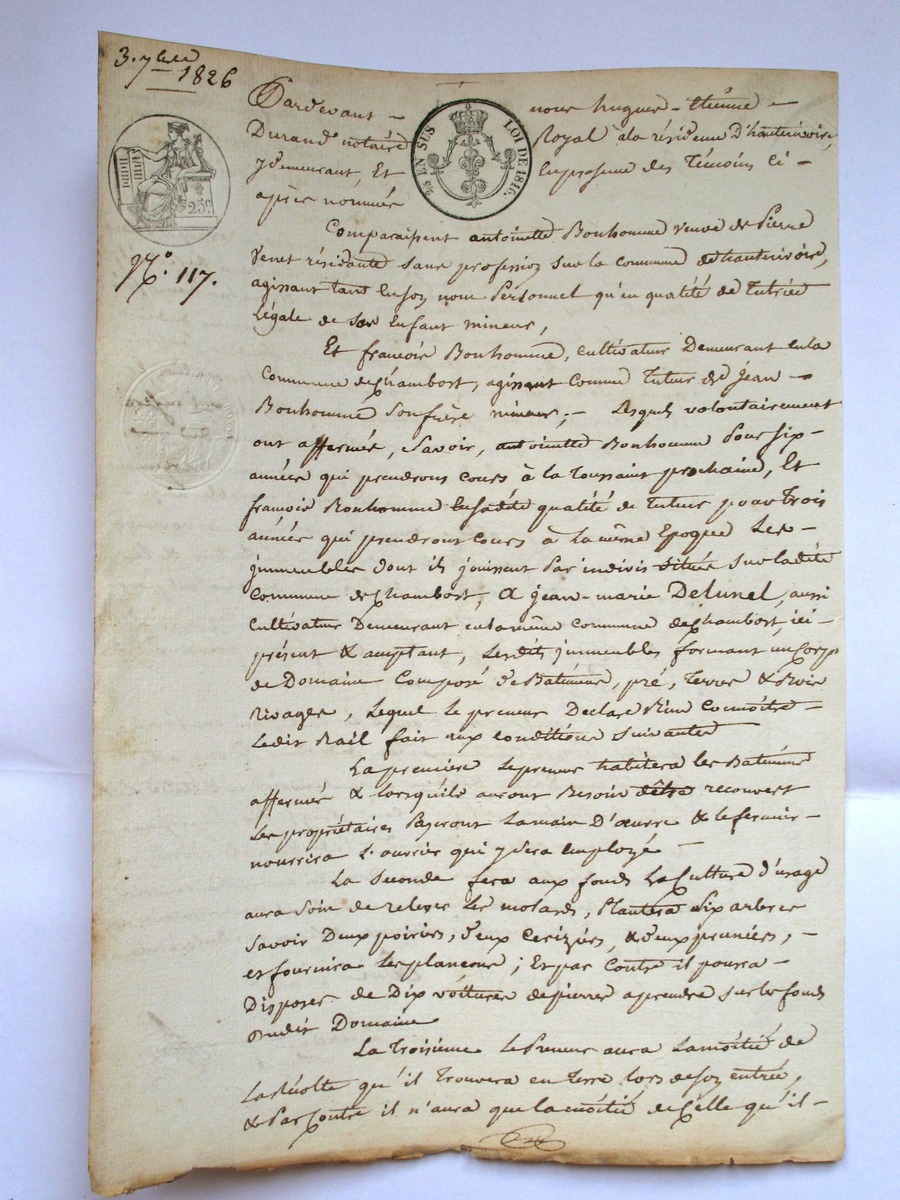 3. 7bre 1826
Pardevant - nous hugues - Etienne -
Durand notaire Royal à la résidence D'hauterivoire,
y demeurant, Et En présence des Témoins Ci -
après nommés
25 EN SUS LOI DE 1816.
25c.
No. 117.
Comparaissent antoinette Bonhomme veuve de Pierre
Venet résidante sans profession sur la commune de hauterivoire,
agissant tant En son nom Personnel qu'en qualité de Tutrice
Légale de ses Enfant mineur,
Et francois Bonhomme, cultivateur Demeurant en la
Commune de Chambost, agissant comme Tuteur de Jean -
Bonhomme son frère mineur; - Lesquels volontairement
ont affermés, Savoir, antoinette Bonhomme Pour six -
années qui prendrons cours à la Toussaint prochaine, Et
francois Bonhomme En sa dite qualité de tuteur pour Trois
années qui prendront cours à La même Epoque Les -
immeubles dont ils jouissent Par indivis situés sur la dite
Commune de Chambost, A jean-marie Delunel, aussi
cultivateur Demeurant en la même commune de Chambost, ici -
présent & acceptant, Les dits immeubles formant un Corps
de Domaine Composé de Batiments, pré, Terres & Bois
Rivages, Lequel Le preneur Declare Bien Connoitre -
Ledit Bail fait aux conditions suivantes
La première Le preneur habitera les Batiments
affermés & Lorsquils auront Besoin d'être recouvert
Les propriétaires Payront La main D'oeuvre & le fermier -
nourrira L'ouvrier qui y sera employé -
La Seconde fera aux fonds La Culture d'usage
aura soin de relever Les molards, Plantera Six arbres
Savoir Deux poiriers, deux Cerisiers, & deux pruniers, -
et fournira Les plancons; Et par Contre il pourra -
Disposer de Dix voitures de pierres a prendre sur les fonds
dudit Domaine
La Troisième Le Preneur aura La moitié de
La récolte qu'il Trouvera en Terre lors de son entrée,
& Par Contre il n'aura que la moitié de Celle qu'il -